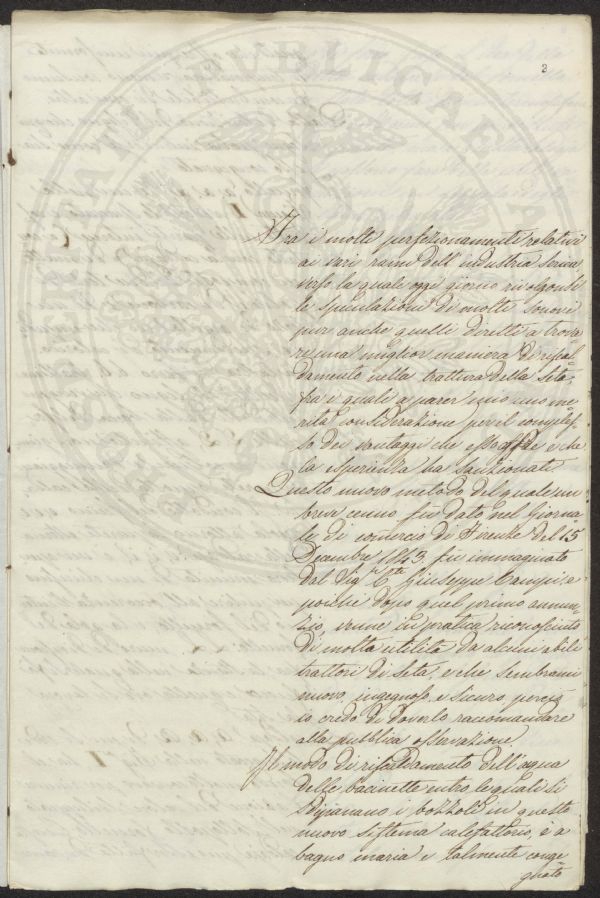 2
PROSPERITATI PUBLICAE A
Fra i molti perfezionamenti relativi
ai vari rami dell'industria serica
verso la quale oggi giorno rivolgonsi
le speculazioni di molti sonovi
pur anche quelli diretti a trova
re una miglior maniera di riscal
damento nella trattura della Seta,
fra i quali a parer mio uno me
rita considerazione per il comples
so dei vantaggi che esso offre e che
la esperienza ha sanzionati.
Questo nuovo metodo del quale un
breve cenno fu dato nel Giorna
le di comercio di Firenze del 15
Decembre 1843, fu immaginato
dal Sig. Cte Giuseppe Campi, e
poiché dopo quel primo annun
zio, venne in pratica riconosciuto
di molta utilità da alcuni abili
trattori di Seta, e che sembrami
nuovo, ingegnoso, e sicuro, perciò
io credo di doverlo raccomandare
alla pubblica osservazione.
Il modo di riscaldamento dell'acqua
delle bacinette entro le quali si
dipanano i bozzoli in questo
nuovo sistema calefattorio, è a
bagno maria e talmente conge
gnato